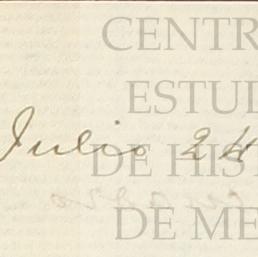 CENTR
ESTUD
Julio 24
DE HIST
DE ME